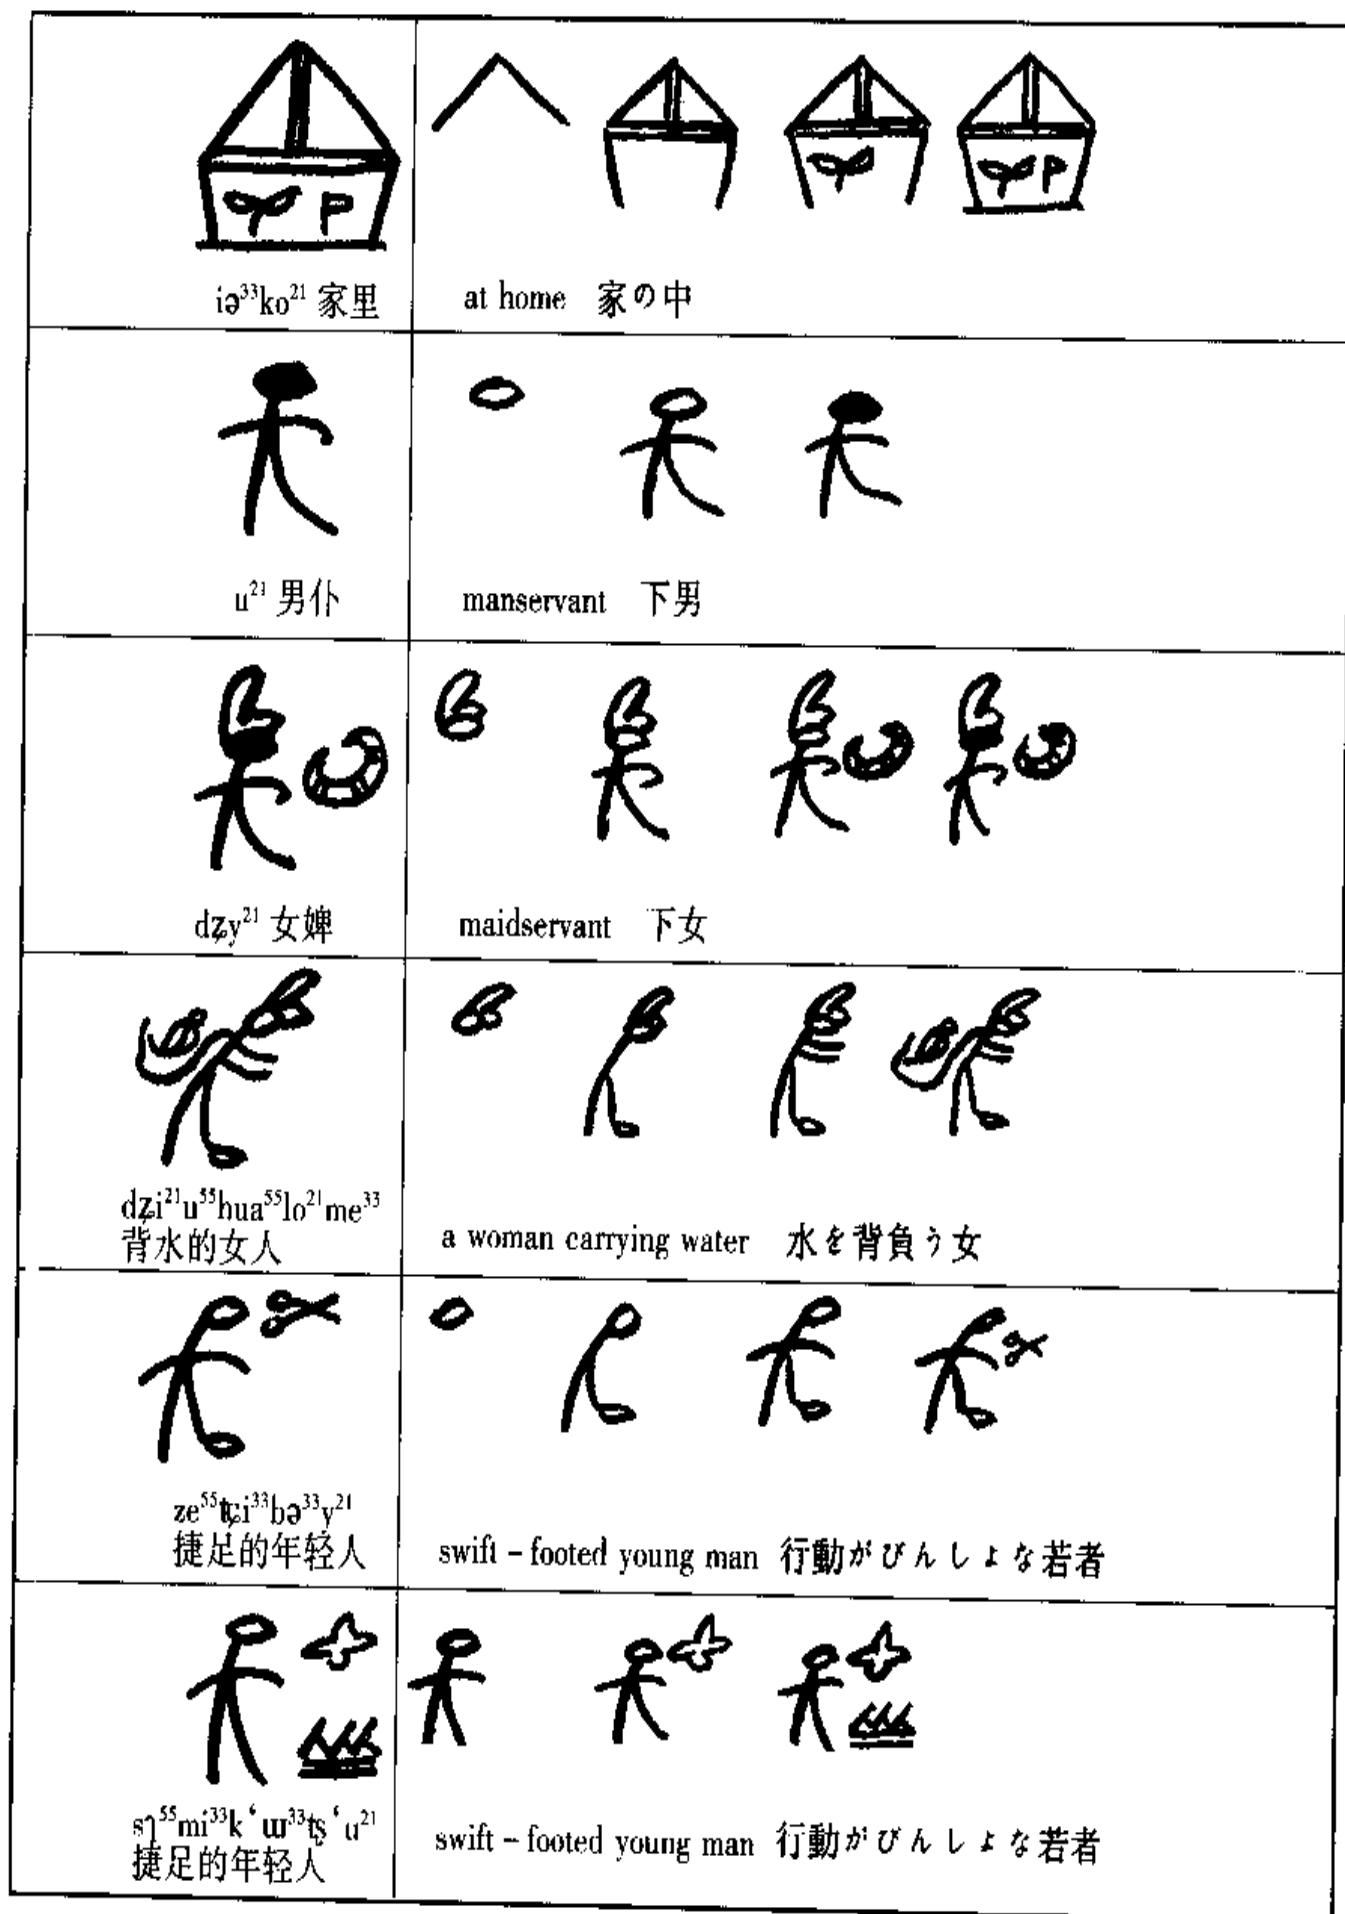 iə³³ko²¹ 家里
at home 家の中
u²¹ 男仆
manservant 下男
dʐy²¹ 女婢
maidservant 下女
dʐi²¹u⁵⁵hua⁵⁵lo²¹me³³
背水的女人
a woman carrying water 水を背負う女
ze⁵⁵tɕi³³bə³³y²¹
捷足的年轻人
swift－footed young man 行動がびんしょな若者
sɿ⁵⁵mi³³k‘ɯ³³tʂ‘u²¹
捷足的年轻人
swift－footed young man 行動がびんしょな若者